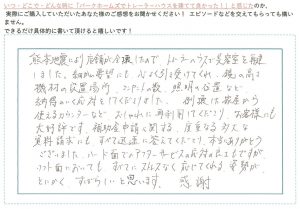 いつ・どこで・どんな時に「パークホームズでトレーラーハウスを建てて良かった！」と感じたのか、
実際にご購入していただいたあなた様のご感想をお聞かせください！ エピソードなどを交えてもらっても構いません。
できるだけ具体的に書いて頂けると嬉しいです！
熊本地震により店舗が全壊したので、トレーラーハウス美容室を建て
ました。細かい要望にも心よく引き受けてくれ、椅の高さ
機材の設置場所、コンセントの数、照明の位置など
納得のいく対応をしてくださいました。 別機は以前から
使えるカウンターなど おしゃれに再利用してくださり、お客様にも
大好評です。補助金申請に関する、度重なる対応と
資料請求にもすぐ迅速に答えてくださり、本当にありがとう
ございました。ハード面でのアフターサービスの対応の良さもですが
ソフト面においても すべてにストレスなく応じてくれる姿勢が
とにかく すばらしいと思います。 感謝